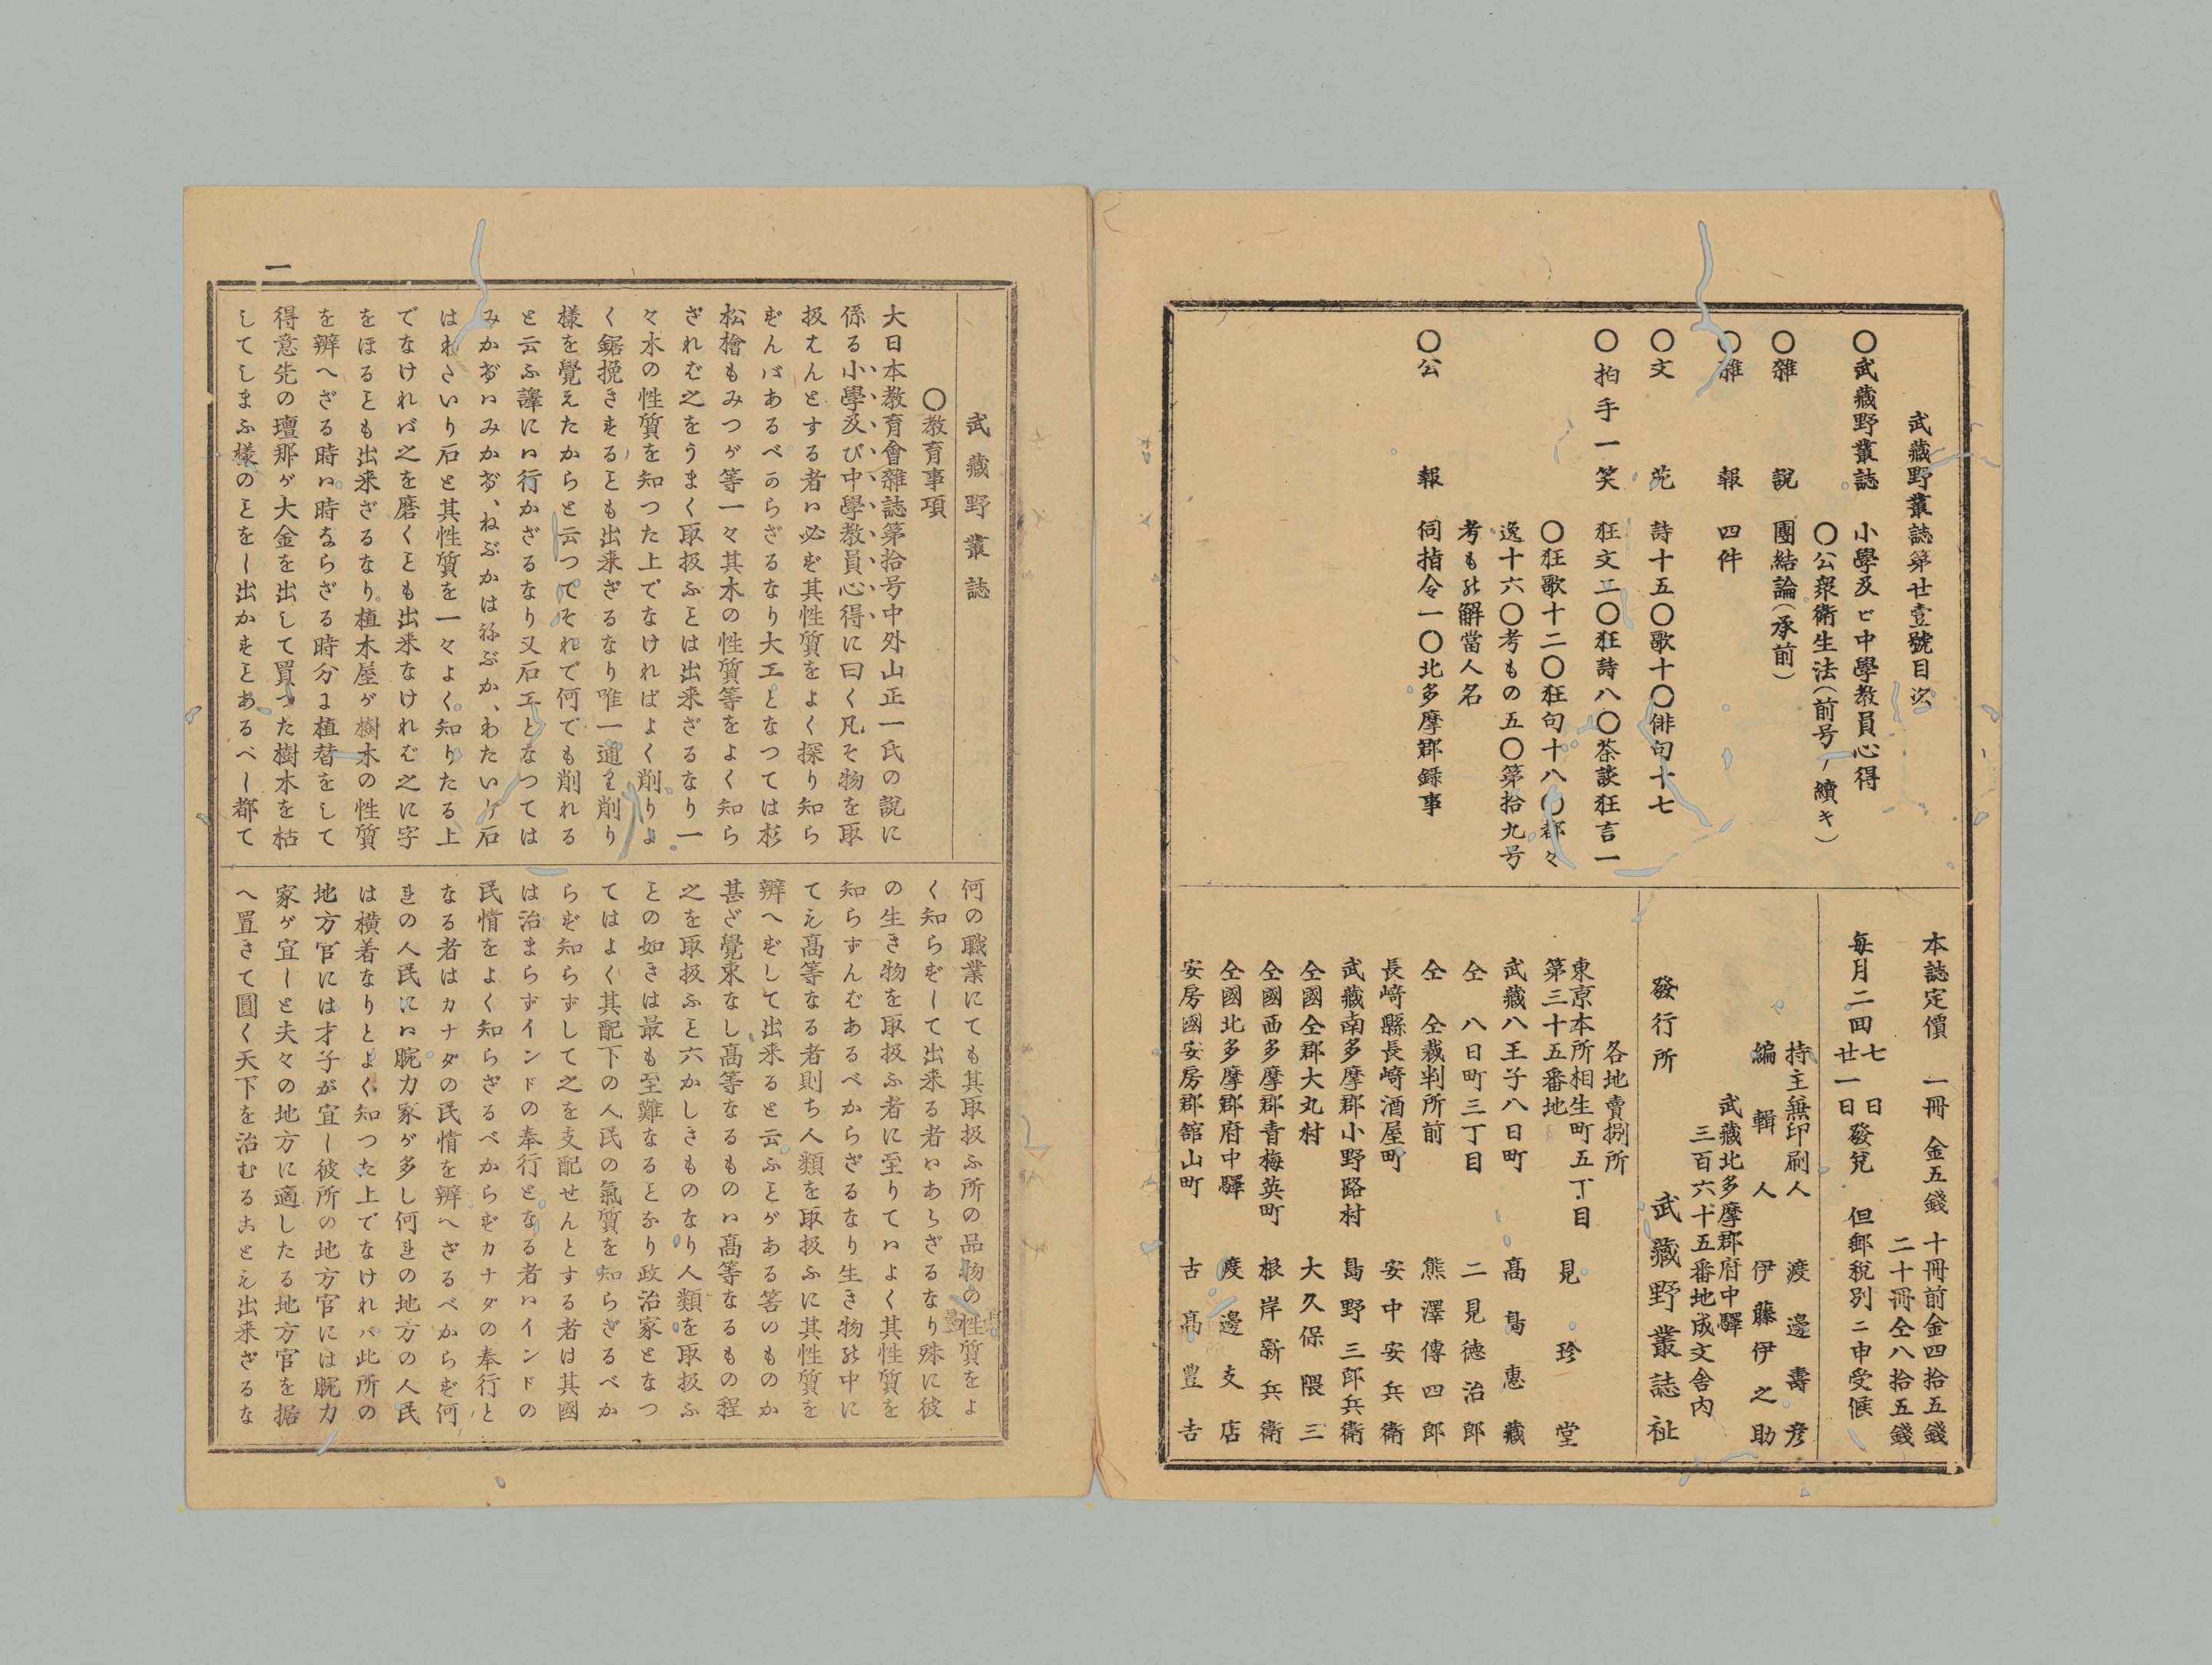 武藏野叢誌第廿壹號目次
〇武藏野叢誌　小學及ビ中學教員心得
〇公衆衛生法（前号ノ續キ）
〇雜　説　團結論（承前）
〇雜　報　四件
〇文　苑　詩十五〇歌十〇俳句十七
〇拍手一笑　狂文二〇狂詩八〇茶談狂言一
〇狂歌十二〇狂句十八〇都々
逸十六〇考もの五〇第拾九号
考もの解當人名
〇公　報　伺指令一〇北多摩郡録事
本誌定價　一冊　金五錢　十冊前金四拾五錢
二十冊仝八拾五錢
毎月二回　七日　廿一日　發兌　但郵税別ニ申受候
持主兼印刷人　渡邊壽彦
編輯人　伊藤伊之助
武藏北多摩郡府中驛
三百六十五番地成文舎内
發行所　武藏野叢誌社
各地賣捌所
東京本所相生町五丁目
第三十五番地　見珍堂
武藏八王子八日町　髙島惠藏
仝　八日町三丁目　二見徳治郎
仝　仝裁判所前　熊澤傳四郎
長崎縣長崎酒屋町　安中安兵衛
武藏南多摩郡小野路村　島野三郎兵衛
仝國仝郡大丸村　大久保隈三
仝國西多摩郡青梅英町　根岸新兵衛
仝國北多摩郡府中驛　渡邊支店
安房國安房郡舘山町　古髙豊吉
一
武藏野叢誌
〇教育事項
大日本教育會雜誌第拾号中外山正一氏の説に
係る小學及び中學教員心得に曰く凡そ物を取
扱はんとする者ハ必ず其性質をよく探り知ら
ずんバあるべからざるなり大工となつては杉
松檜もみつが等一々其木の性質等をよく知ら
ざれば之をうまく取扱ふとは出来ざるなり一
々木の性質を知つた上でなければよく削りよ
く鋸挽きすることも出来ざるなり唯一通り削り
樣を覺えたからと云つてそれで何でも削れる
と云ふ譯にハ行かざるなり又石工となつては
みかげハみかげ、ねぶかはねぶか、わたいハ石
はわさいり石と其性質を一々よく知りたる上
でなけれバ之を磨くことも出来なければ之に字
をほることも出来ざるなり植木屋が樹木の性質
を辨へざる時ハ時ならざる時分に植替をして
得意先の壇那が大金を出して買つた樹木を枯
してしまふ樣のことをし出かすことあるべし都て
何の職業にても其取扱ふ所の品物の性質をよ
く知らずして出来る者ハあらざるなり殊に彼
の生き物を取扱ふ者に至りてハよく其性質を
知らずんばあるべからざるなり生き物の中に
ても髙等なる者則ち人類を取扱ふに其性質を
辨へずして出来ると云ふことがある筈いものか
甚だ覺束なし髙等なるものハ髙等なるもの程
之を取扱ふこと六かしきものなり人類を取扱ふ
ことの如きは最も至難なることなり政治家となつ
てはよく其配下の人民の氣質を知らざるべか
らず知らずして之を支配せんとする者は其國
は治まらずインドの奉行となる者ハインドの
民情をよく知らざるべからずカナダの奉行と
なる者はカナダの民情を辨へざるべからず何
處の人民にハ腕力家が多し何處の地方の人民
は横着なりとよく知つた上でなけれバ此所の
地方官には才子が宜し彼所の地方官には腕力
家が宜しと夫々の地方に適したる地方官を据
へ置きて圓く天下を治むることも出来ざるな